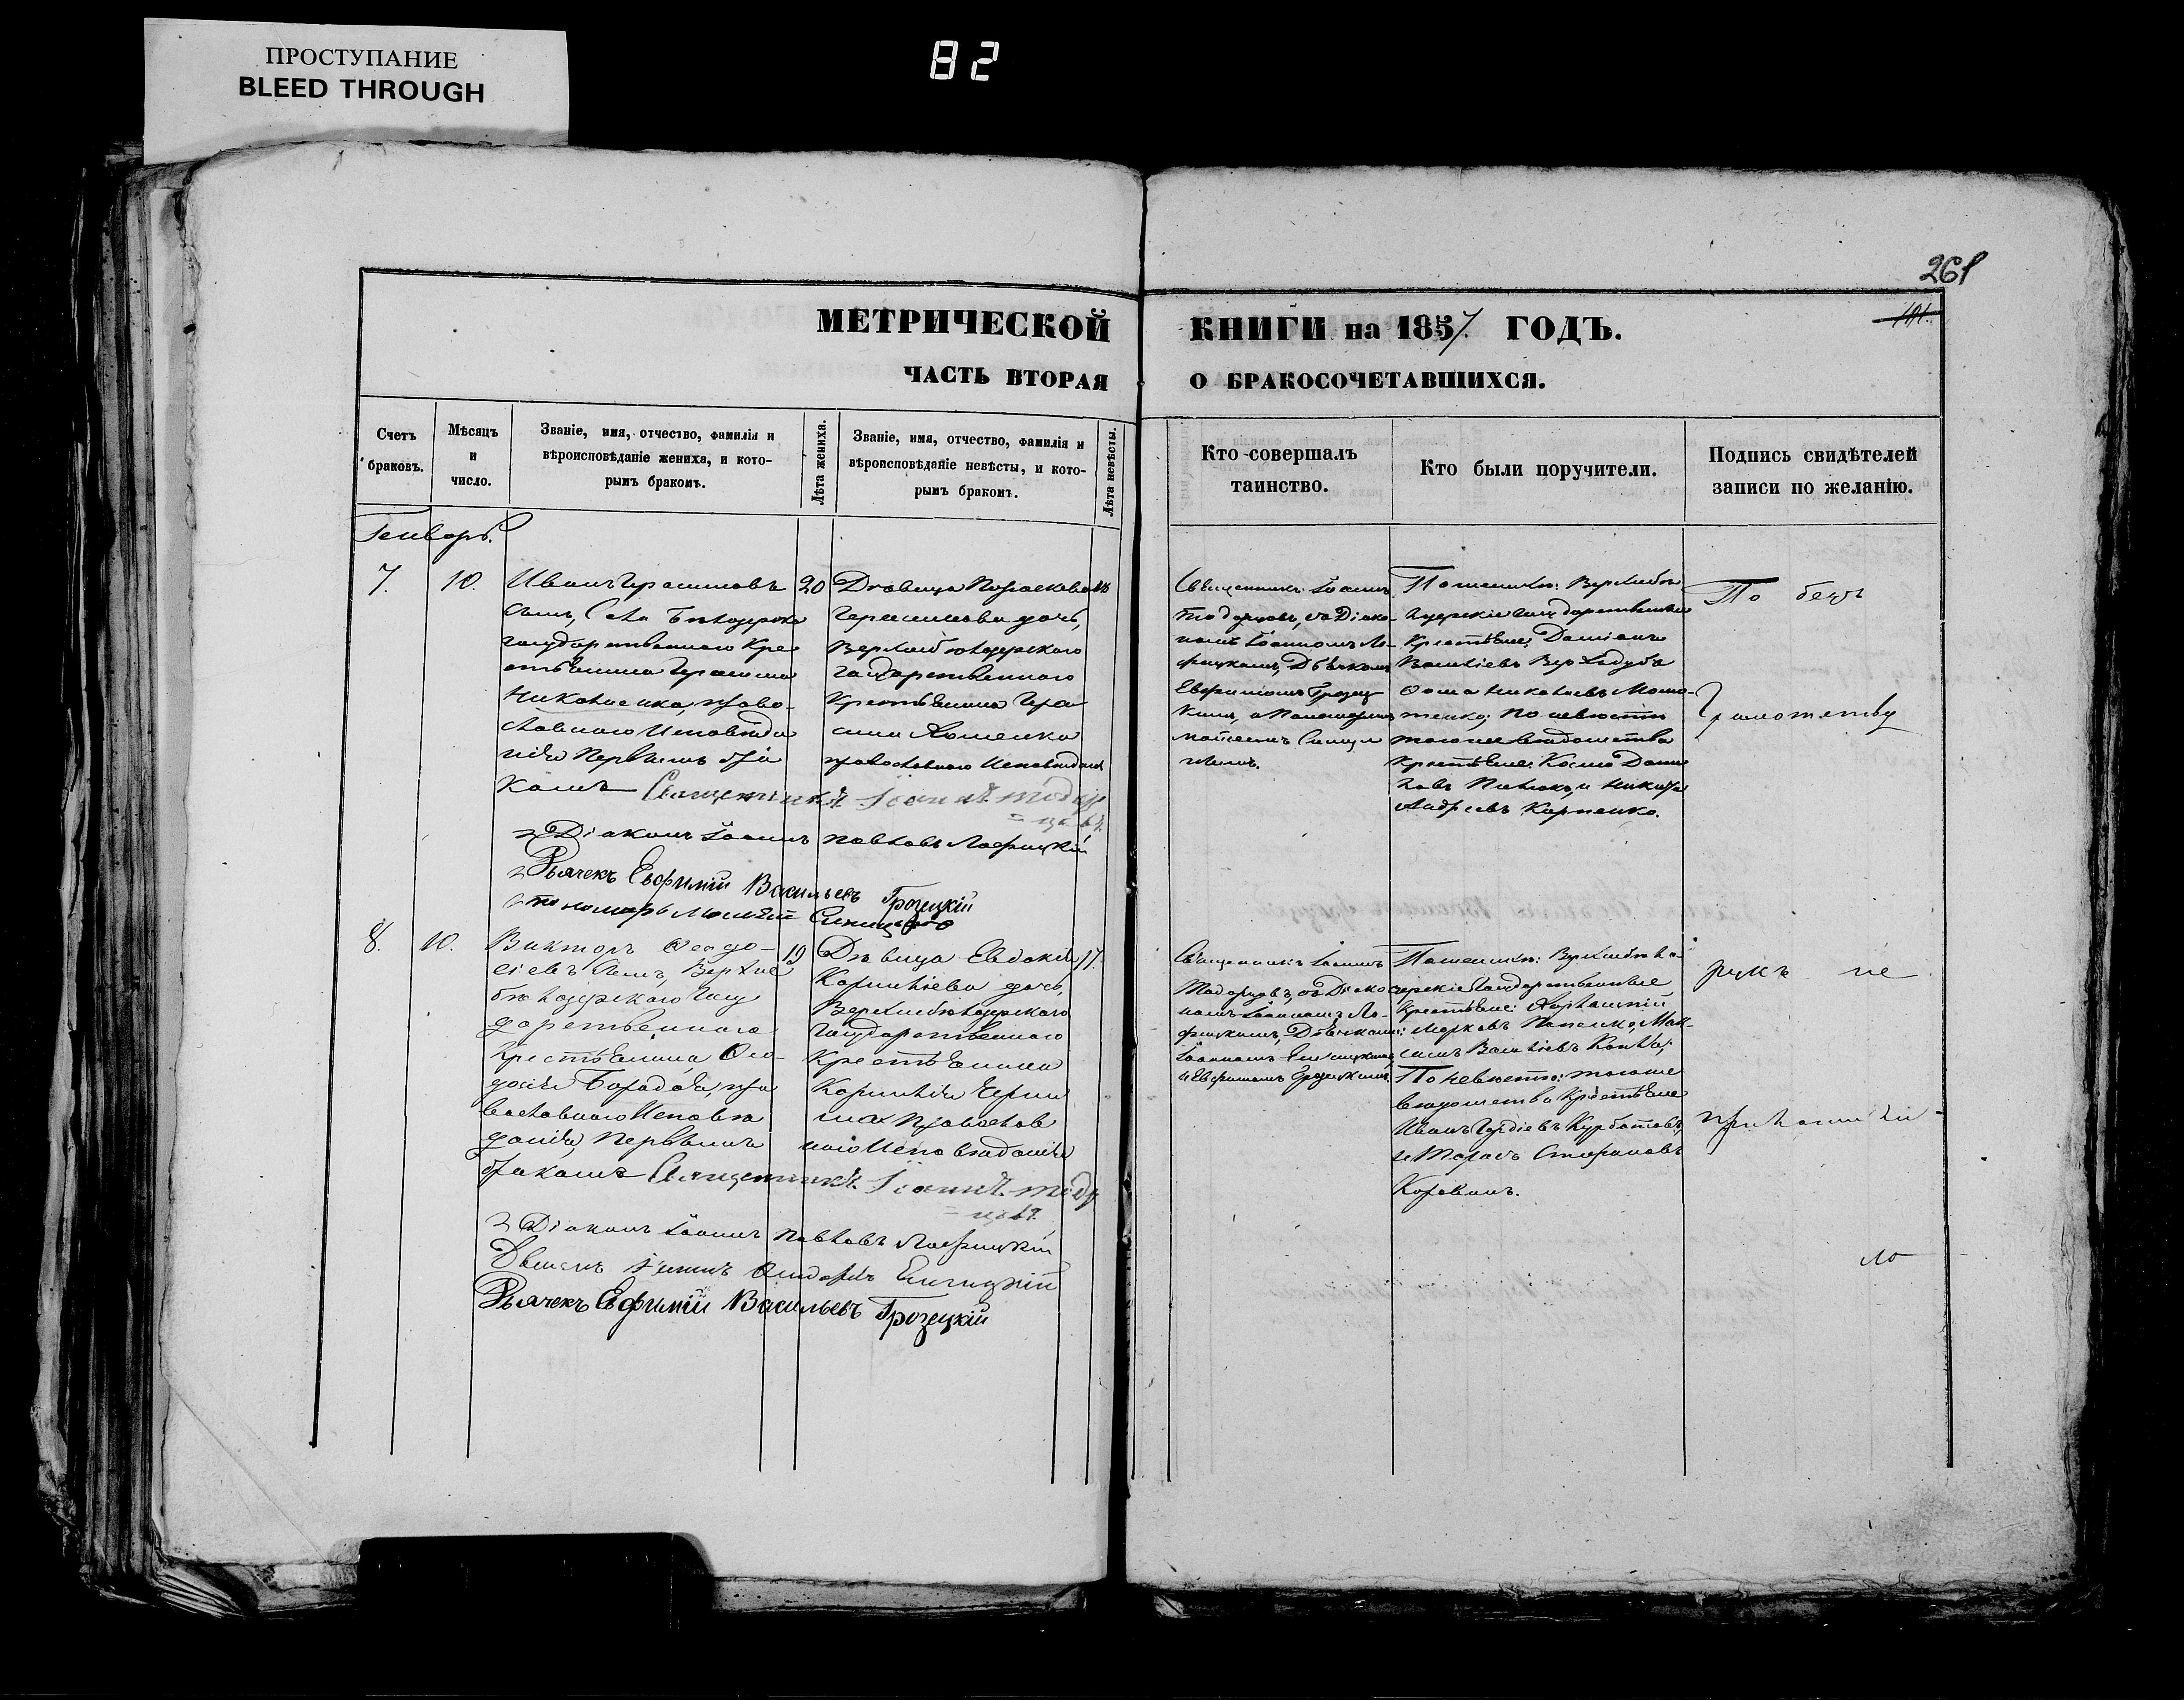 ПРОСТУПАНИЕ
BLEED THROUGH
82
261
191.
МЕТРИЧЕСКОЙ КНИГИ на 1857. ГОДЪ.
ЧАСТЬ ВТОРАЯ О БРАКОСОЧЕТАВШИХСЯ.
Счетъ
браковъ.
Мѣсяцъ
и
число.
Званіе, имя, отчество, фамилія и
вѣроисповѣданіе жениха, и кото-
рымъ бракомъ.
Лѣта жениха.
Званіе, имя, отчество, фамилія и
вѣроисповѣданіе невѣсты, и кото-
рымъ бракомъ.
Лѣта невѣсты.
Кто совершалъ
таинство.
Кто были поручители.
Подпись свидѣтелей
записи по желанію.
Генварь.
7.
10.
Иванъ Герасимовъ
сынъ, Села Бѣлозерки
государственного Кре
стьянина Герасима
Николаенка, право-
славного Исповѣда
нія Первымъ бра
комъ
20
Дѣвица Параскева
Герасимова дочь,
Верхнебѣлозерского
Государственного
Крестьянина Гера
сима
православного Исповѣданія
18
Священникъ Іоаннъ
Тодорцовъ, съ Діако-
номъ Іоанномъ Ло-
фицкимъ, Дьячкомъ
Евфиміемъ Грозец
кимъ, и Пономаремъ
Моисеемъ Синиц
Поженихѣ: Верхнебѣло
зерскіе Государственные
Крестьяне, Даміанъ
Васильевъ Верходубъ
Фома Николаевъ Мото-
тенко; По невѣстѣ
того же вѣдомства
Крестьяне: Косма Дани
ловъ и Никифоръ
Андреевъ Карпенко.
По безъ
Грамотству
Священникъ Іоаннъ Тодор
= цовъ.
Діаконъ Іоаннъ Павловъ Лофицкій
Дьячекъ Евфимій Васильевъ Грозецкій
Пономарь Моисей
8.
10.
Викторъ Феодо-
сіевъ сынъ, Верхне
бѣлозерского Госу
дарственного
Крестьянина Фео-
досія Бородая, пра
вославного Исповѣ
данія, Первымъ
бракомъ
19
Дѣвица Евдокія
Корниліева дочь,
Верхнебѣлозерского
Государственного
Крестьянина
Корнилія Черни
ша Православ
ного Исповѣданія
17.
Священникъ Іоаннъ
Тодорцовъ, съ Діако
номъ Іоанномъ Ло-
фицкимъ, Дьячками:
Іоанномъ
и Евфиміемъ Грозецкимъ.
Поженихѣ: Верхнебѣло
зерскіе Государственные
Крестьяне:
Марковъ Попенко, Мак-
симъ Васильевъ
По невѣстѣ: того же
вѣдомства Крестьяне
Иванъ Гордіевъ Курбатовъ,
и Тарасъ Стефановъ
рукъ не
приложили
Священникъ Іоаннъ Тодор
= цовъ.
Діаконъ Іоаннъ Павловъ Лофицкій
Дьячекъ Іоаннъ
Дьячекъ Евфимій Васильевъ Грозецкій